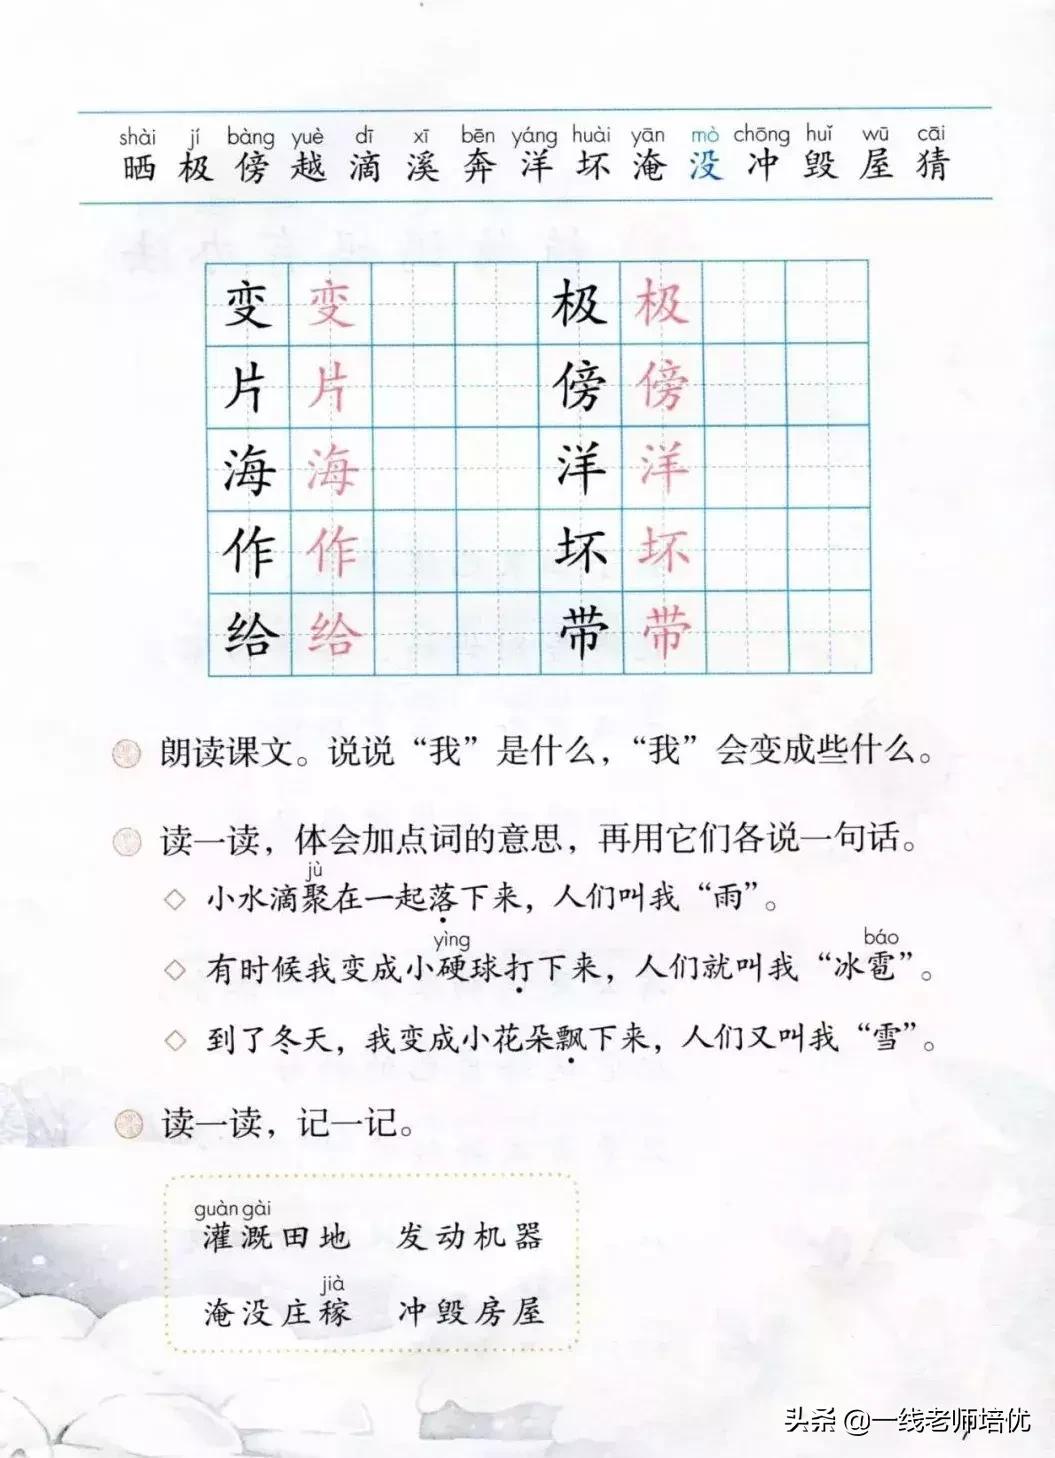 shài jí bàng yuè dī xī bēn yáng huài yān mò chōng huǐ wū cāi
晒 极 傍 越 滴 溪 奔 洋 坏 淹 没 冲 毁 屋 猜
变 变 极 极
片 片 傍 傍
海 海 洋 洋
作 作 坏 坏
给 给 带 带
朗读课文。说说“我”是什么，“我”会变成些什么。
读一读，体会加点词的意思，再用它们各说一句话。
jù
小水滴聚在一起落下来，人们叫我“雨”。
yìng báo
有时候我变成小硬球打下来，人们就叫我“冰雹”。
到了冬天，我变成小花朵飘下来，人们又叫我“雪”。
读一读，记一记。
guàn gài
灌溉田地 发动机器
jià
淹没庄稼 冲毁房屋
头条 @一线老师培优
7